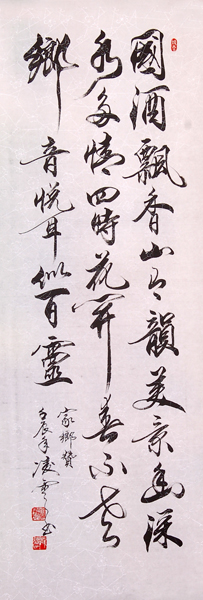 國酒飄香山韻美景幽深
水多情四時花開春不老
鄉音悅耳似百靈
家鄉贊
壬辰年凌雲書